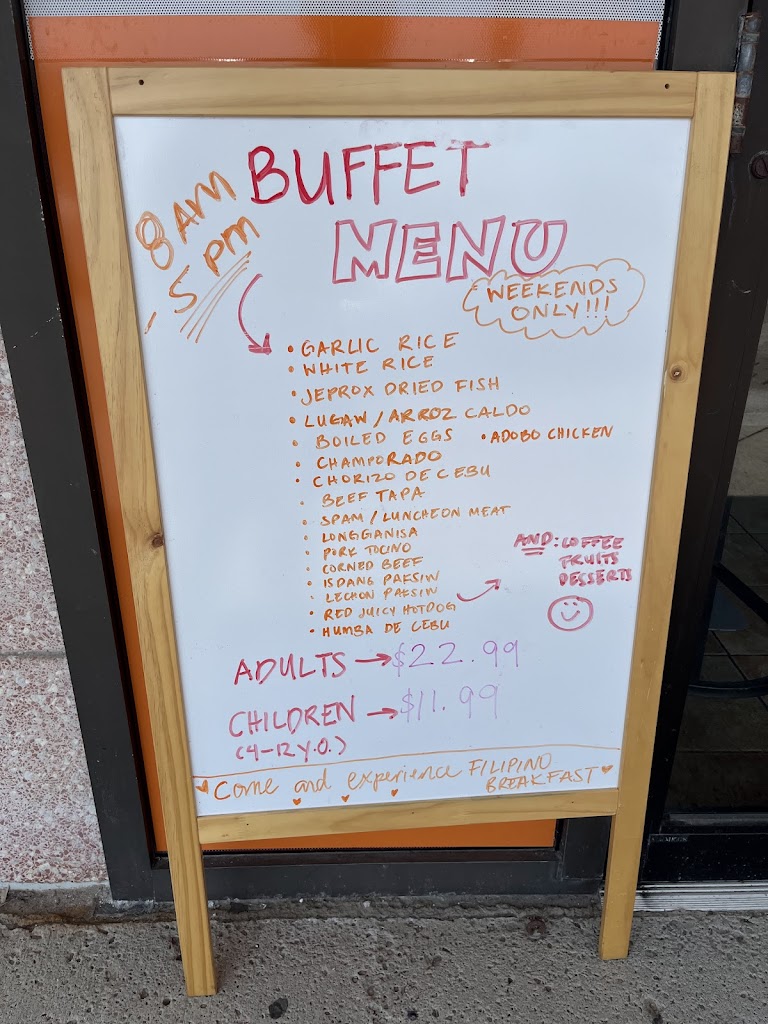 BUFFET
MENU
8AM
- 5 PM
WEEKENDS
ONLY!!!
• GARLIC RICE
• WHITE RICE
• JEPROX DRIED FISH
• LUGAW / ARROZ CALDO
• BOILED EGGS • ADOBO CHICKEN
• CHAMPORADO
• CHORIZO DE CEBU
• BEEF TAPA
• SPAM / LUNCHEON MEAT
• LONGGANISA
• PORK TOCINO
• CORNED BEEF
• ISDANG PAKSIW
• LECHON PAKSIW
• RED JUICY HOTDOG
• HUMBA DE CEBU
AND: COFFEE
FRUITS
DESSERTS
ADULTS → $22.99
CHILDREN → $11.99
(4-12 Y.O.)
Come and experience FILIPINO
BREAKFAST